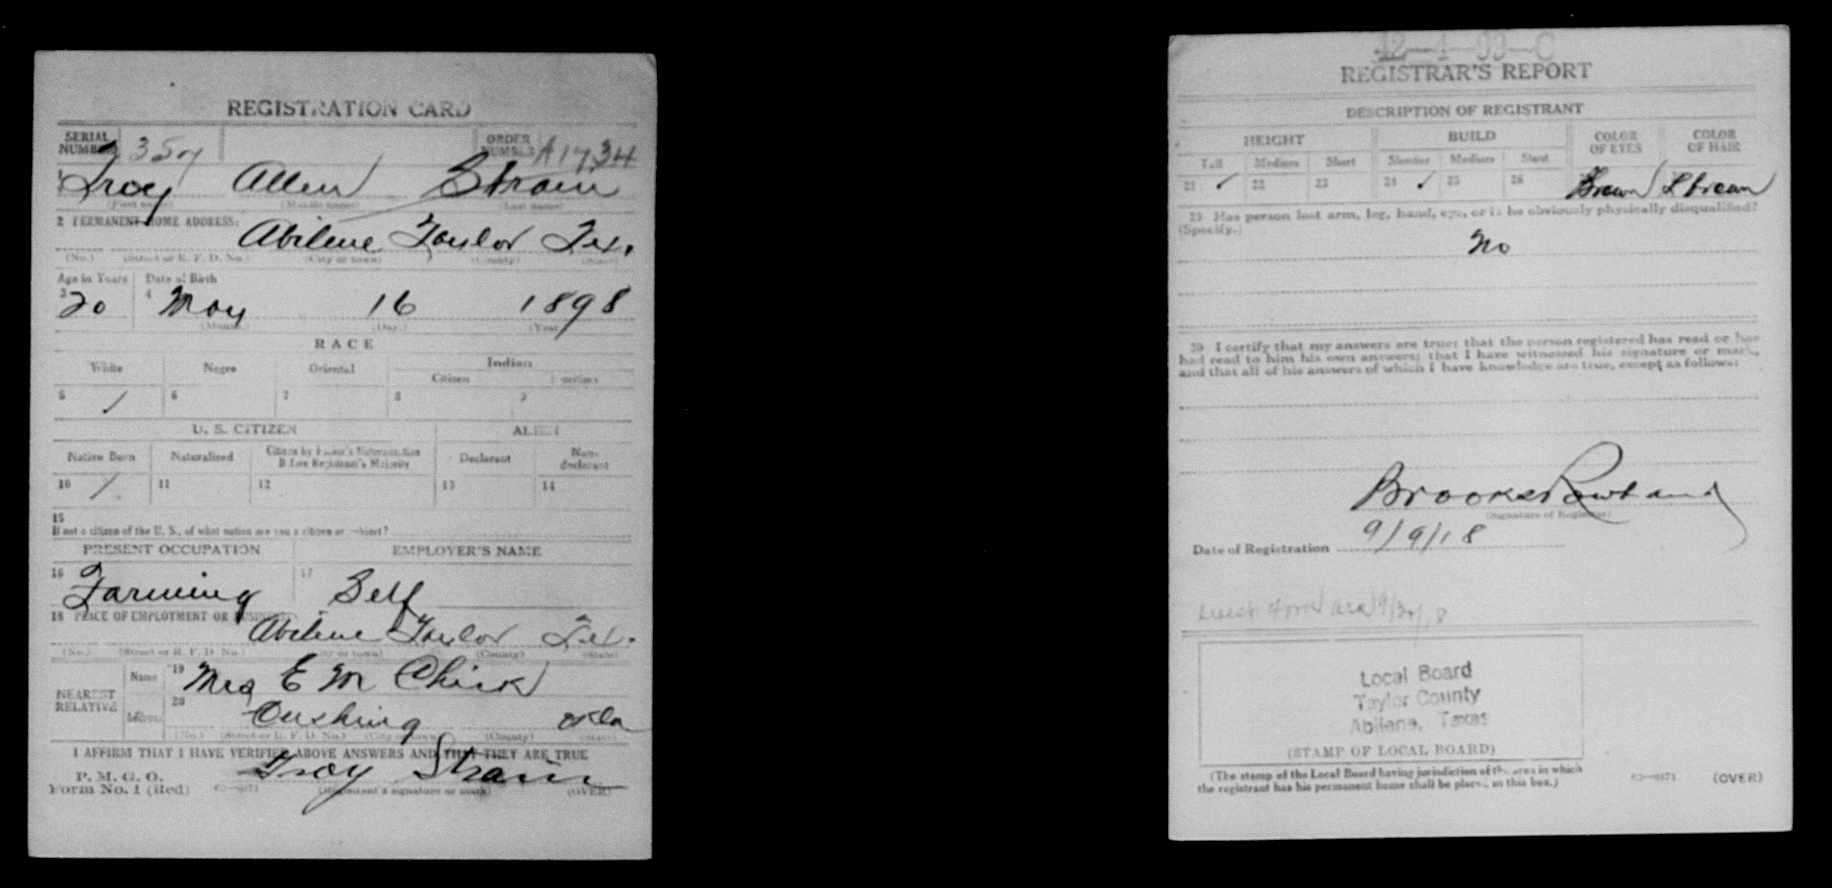 REGISTRATION CARD
SERIAL NUMBER
ORDER NUMBER A1734
1 Troy Allen Strain
(First name) (Middle name) (Last name)
2 PERMANENT HOME ADDRESS:
Abilene Taylor Tex.
(No.) (Street or R. F. D. No.) (City or town) (County) (State)
Age in Years Date of Birth
3 20 4 May 16 1898
(Month) (Day) (Year)
RACE
White Negro Oriental Indian
Citizen
5 / 6 7 8 9
U. S. CITIZEN ALIEN
Native Born Naturalized Citizen by Father's Naturalization Before Registrant's Majority Declarant Non-declarant
10 / 11 12 13 14
15
If not a citizen of the U. S., of what nation are you a citizen or subject?
PRESENT OCCUPATION EMPLOYER'S NAME
16 Farming 17 Self
18 PLACE OF EMPLOYMENT OR BUSINESS:
Abilene Taylor Tex.
(No.) (Street or R. F. D. No.) (City or town) (County) (State)
NEAREST RELATIVE Name 19 Mrs E M Chick
Address 20 Cushing Okla
(No.) (Street or R. F. D. No.) (City or town) (County) (State)
I AFFIRM THAT I HAVE VERIFIED ABOVE ANSWERS AND THAT THEY ARE TRUE
P. M. G. O.
Form No. 1 (Red) Troy Strain
(Registrant's signature or mark) (OVER)
REGISTRAR'S REPORT
DESCRIPTION OF REGISTRANT
HEIGHT BUILD COLOR OF EYES COLOR OF HAIR
Tall Medium Short Slender Medium Stout
21 ✓ 22 23 24 ✓ 25 26 Brown L Brown
29 Has person lost arm, leg, hand, eye, or is he obviously physically disqualified?
(Specify.)
No
30 I certify that my answers are true; that the person registered has read or has
had read to him his own answers; that I have witnessed his signature or mark,
and that all of his answers of which I have knowledge are true, except as follows:
Brooks Rowland
(Signature of Registrar)
Date of Registration 9/9/18
Local Board
Taylor County
Abilene, Texas
(STAMP OF LOCAL BOARD)
(The stamp of the Local Board having jurisdiction of the area in which
the registrant has his permanent home shall be placed in this box.)
(OVER)